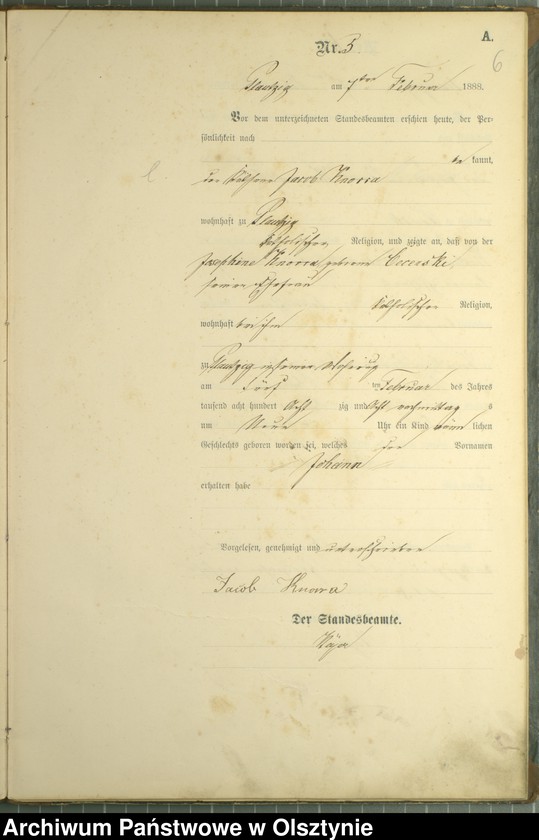 A.
6
Nr. 5
Plautzig am 7ten Februar 1888.
Vor dem unterzeichneten Standesbeamten erschien heute, der Per-
sönlichkeit nach
be kannt,
der Jacob Knorra
wohnhaft zu Plautzig
katholischer Religion, und zeigte an, daß von der
Josephine Knorra geborene
seiner Ehefrau
katholischer Religion,
wohnhaft bei ihm
zu Plautzig in seiner Wohnung
am ten Februar des Jahres
tausend acht hundert acht zig und acht vormittag s
um Neun Uhr ein Kind männ lichen
Geschlechts geboren worden sei, welches den Vornamen
Johann
erhalten habe
Vorgelesen, genehmigt und unterschrieben
Jacob Knorra
Der Standesbeamte.
Archiwum Państwowe w Olsztynie